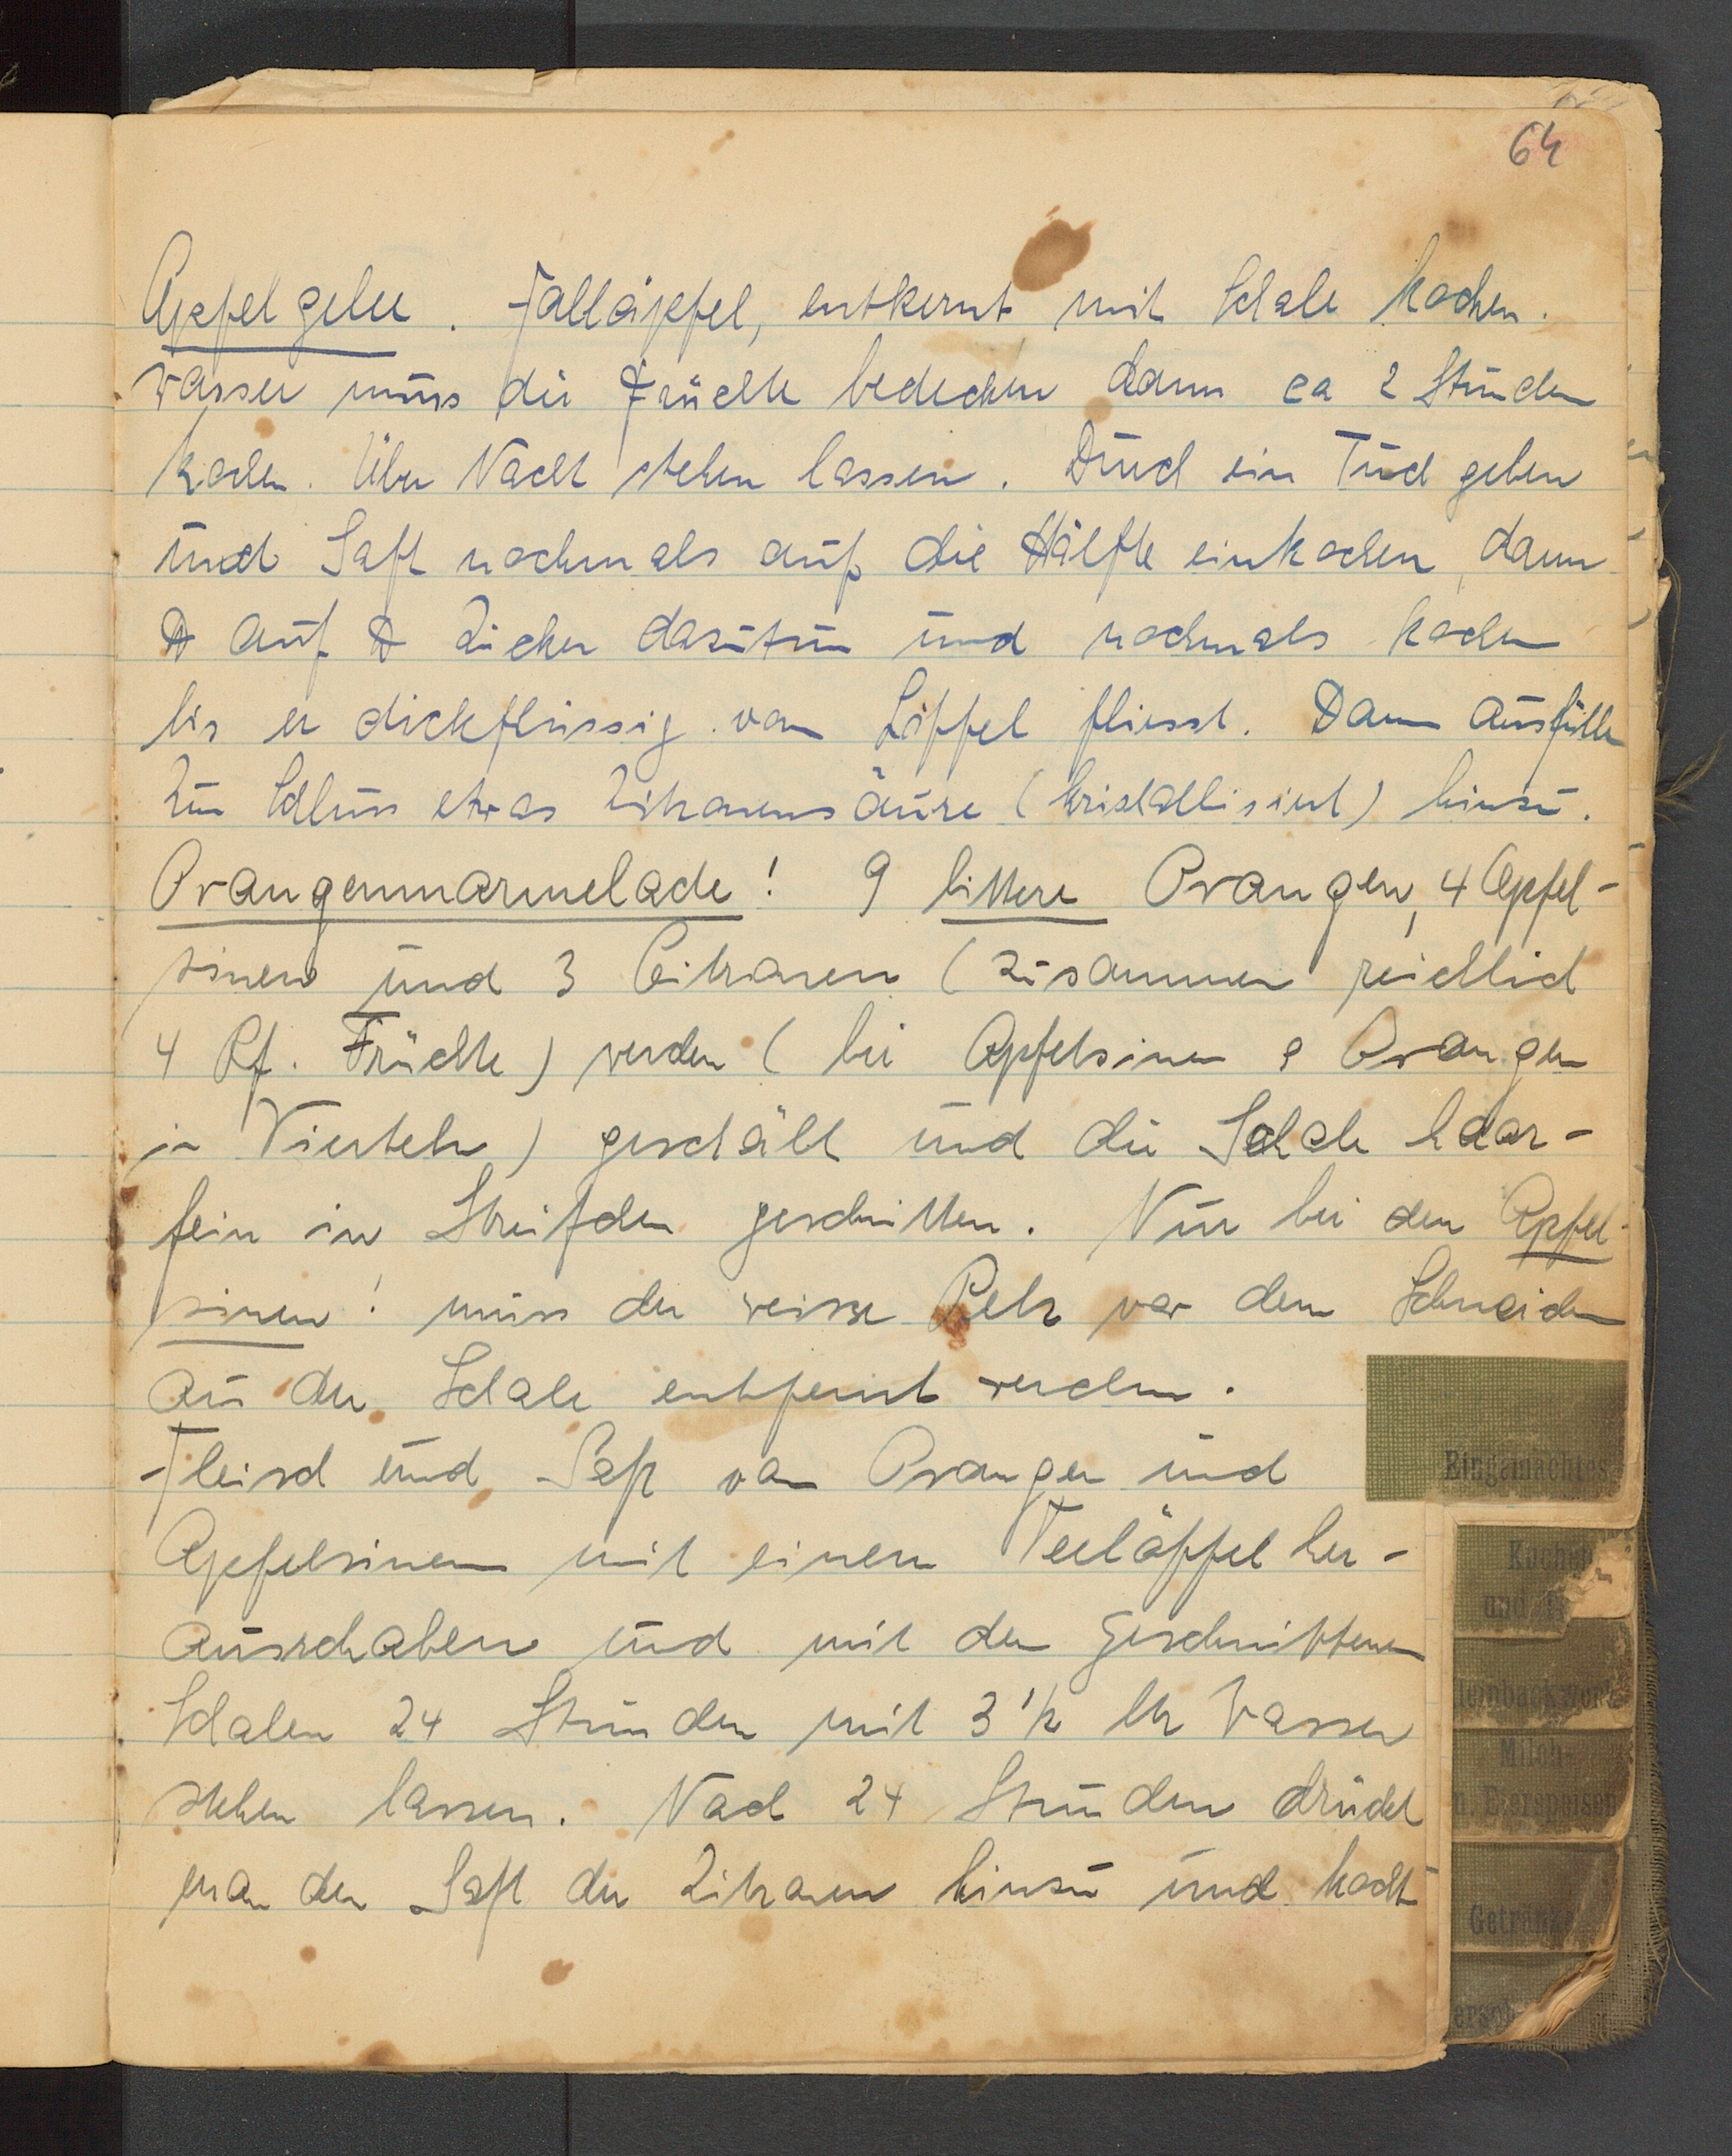 64
Apfelgelee. Falläpfel, entkernt mit Schale kochen.
Wasser muss die Früchte bedecken dann ca 2 Stunden
kochen. Über Nacht stehen lassen. Durch ein Tuch geben
und Saft nochmals auf die Hälfte einkochen, dann
℔ auf ℔ Zucker dazutun und nochmals kochen
bis er dickflüssig vom Löffel fliesst. Dann ausfüllen
Zum Schluss etwas Zitronensäure (kristallisiert) hinzu.
Orangenmarmelade! 9 bittere Orangen, 4 Apfel-
sinen und 3 Citronen (zusammen reichlich
4 Pf. Früchte) werden (bei Apfelsinen & Orangen
in Vierteln) geschält und die Schale haar-
fein in Streifchen geschnitten. Nur bei den Apfel-
sinen! muss der weisse Pelz vor dem Schneiden
aus der Schale entfernt werden.
Fleisch und Saft von Orangen und
Apfelsinen mit einem Teelöffel her-
ausschaben und mit den geschnittenen
Schalen 24 Stunden mit 3 1/2 ltr Wasser
stehen lassen. Nach 24 Stunden drückt
man den Saft der Zitronen hinzu und kocht
Eingemachtes
Kuchen
und
Kleinbackwerk
Milch-
u. Eierspeisen
Getränke